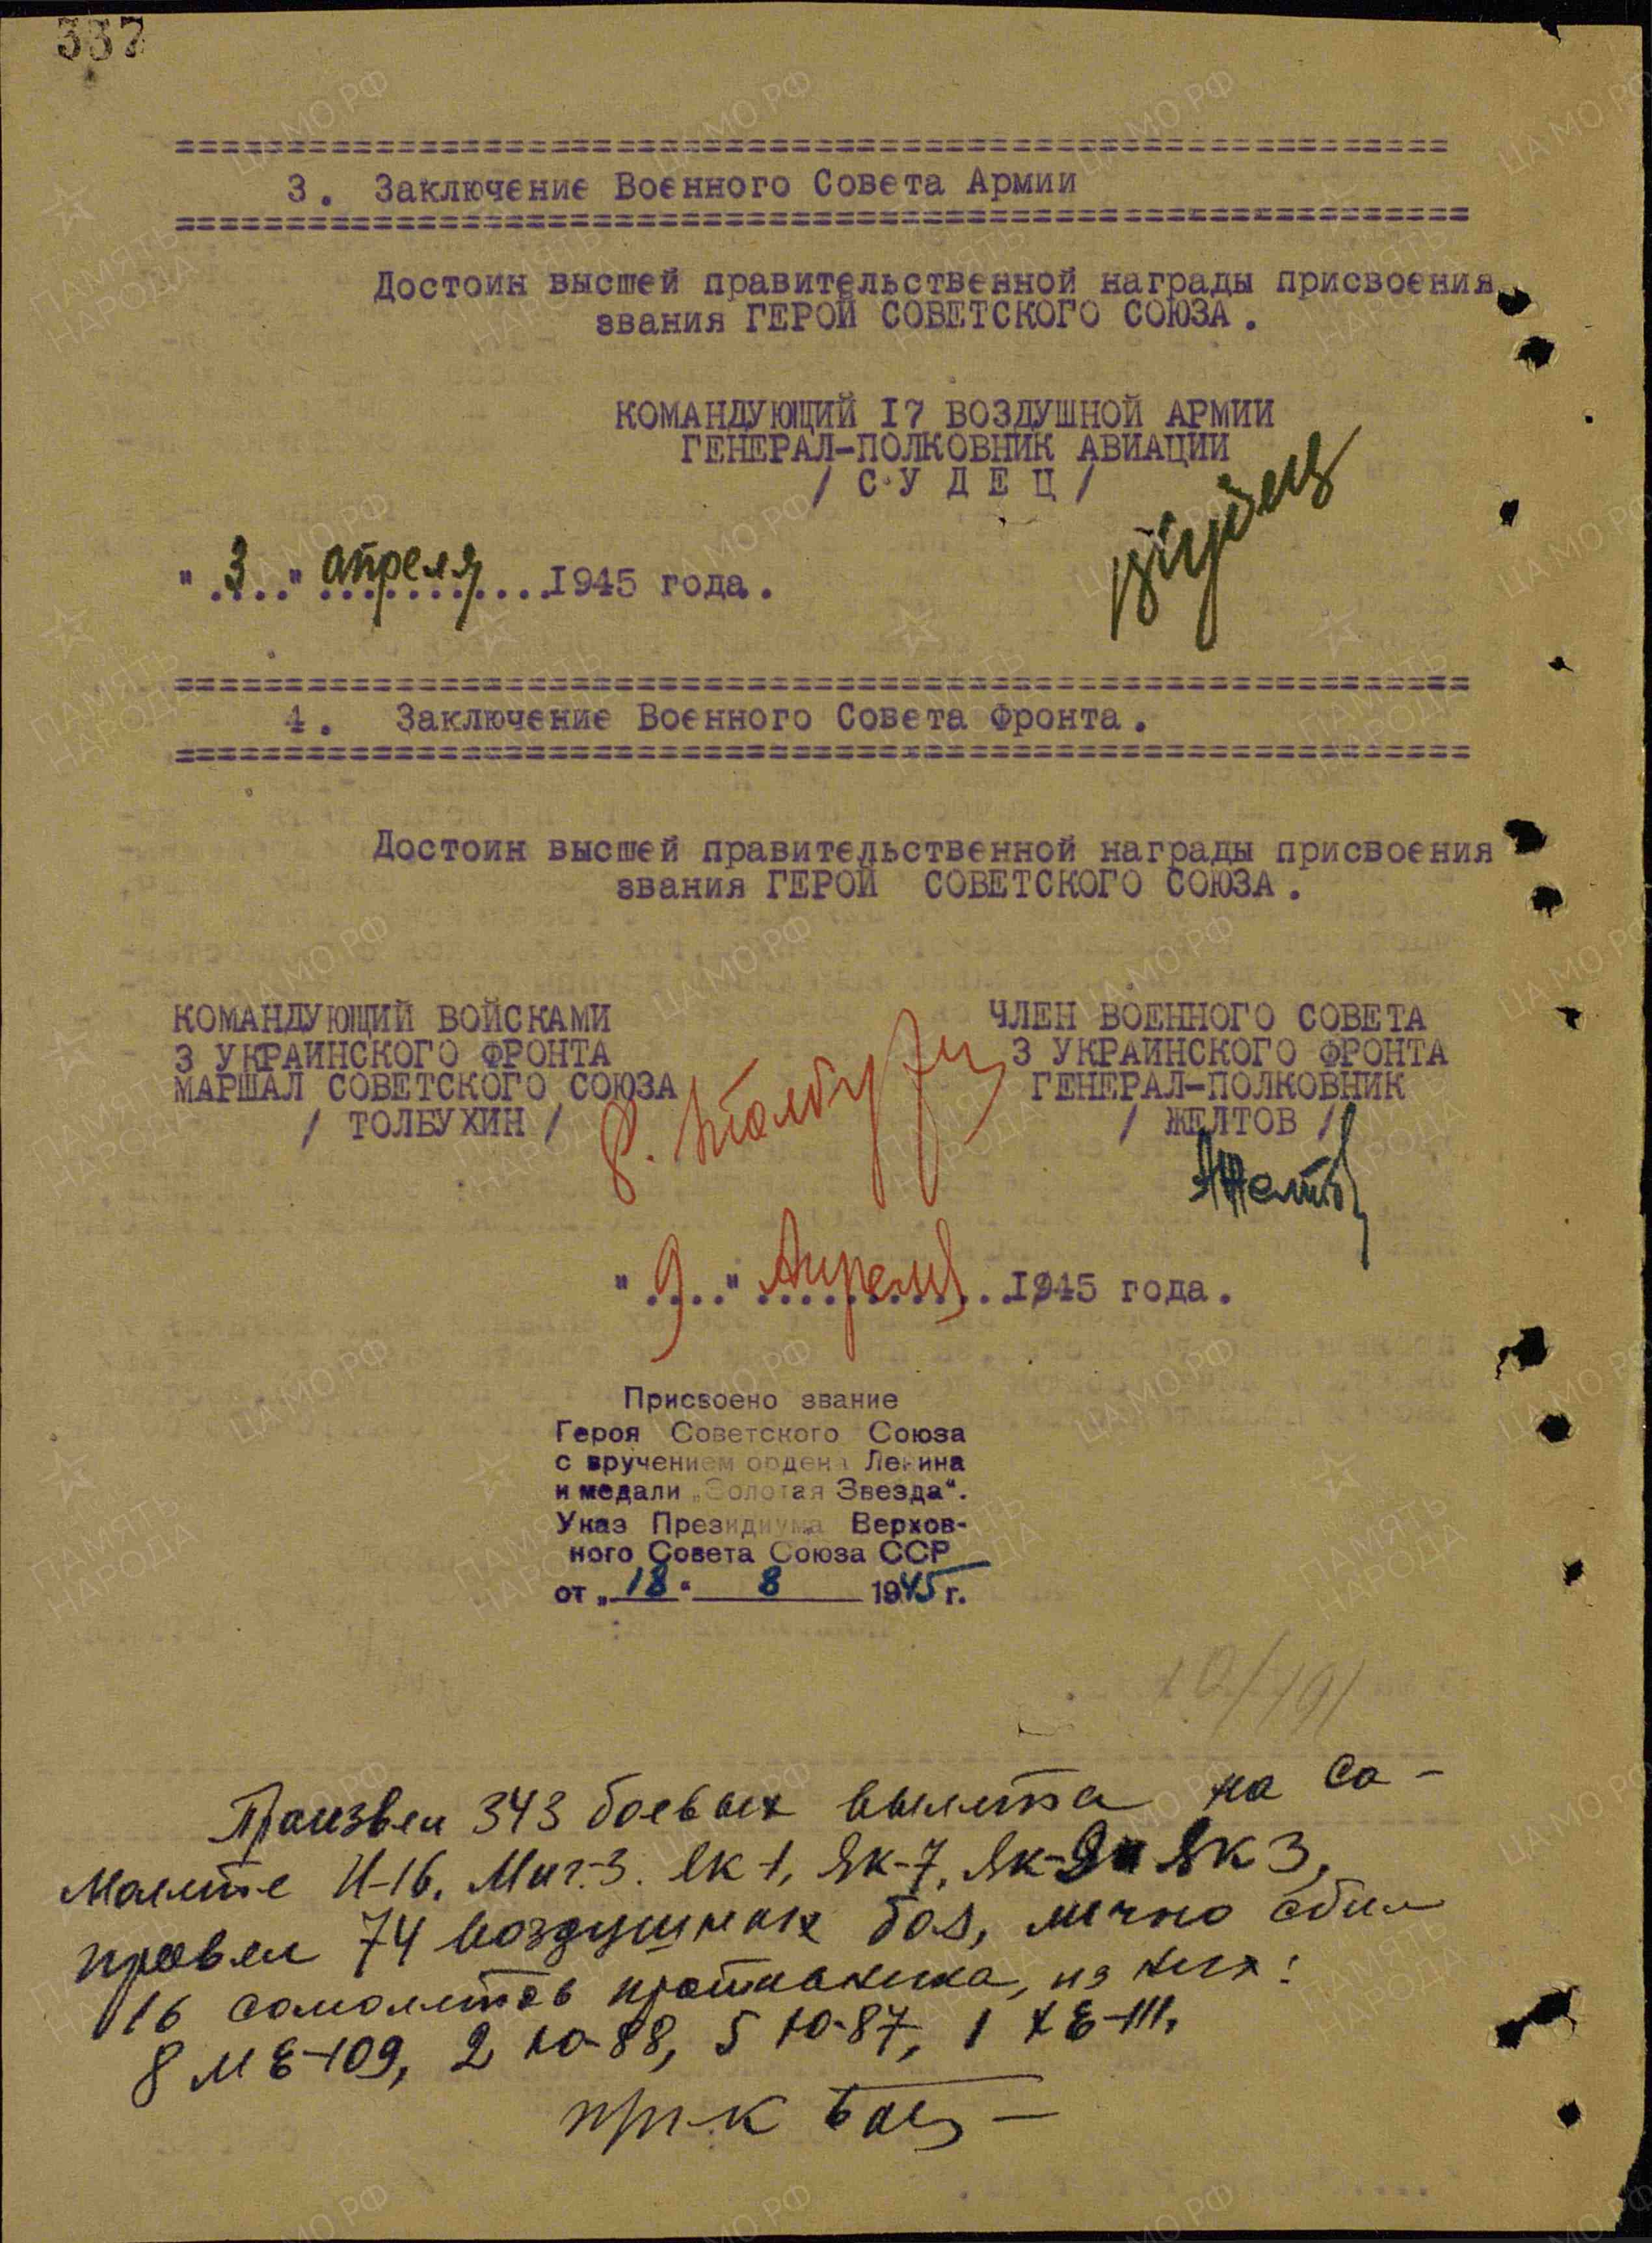 337
3. Заключение Военного Совета Армии
Достоин высшей правительственной награды присвоения
звания ГЕРОЙ СОВЕТСКОГО СОЮЗА.
КОМАНДУЮЩИЙ I7 ВОЗДУШНОЙ АРМИИ
ГЕНЕРАЛ-ПОЛКОВНИК АВИАЦИИ
/ С У Д Е Ц /
ВСудец
"3" апреля 1945 года.
4. Заключение Военного Совета Фронта.
Достоин высшей правительственной награды присвоения
звания ГЕРОЙ СОВЕТСКОГО СОЮЗА.
КОМАНДУЮЩИЙ ВОЙСКАМИ
3 УКРАИНСКОГО ФРОНТА
МАРШАЛ СОВЕТСКОГО СОЮЗА
/ ТОЛБУХИН /
Ф. Толбухин
ЧЛЕН ВОЕННОГО СОВЕТА
3 УКРАИНСКОГО ФРОНТА
ГЕНЕРАЛ-ПОЛКОВНИК
/ ЖЕЛТОВ /
АЖелтов
"9" Апреля 1945 года.
Присвоено звание
Героя Советского Союза
с вручением ордена Ленина
и медали „Золотая Звезда".
Указ Президиума Верхов-
ного Совета Союза ССР
от „18" 8 1945 г.
Произвел 343 боевых вылета на са-
молете И-16, Миг-3. Як-1, Як-7, Як-9 и Як 3,
провел 74 воздушных боя, лично сбил
16 самолетов противника, из них:
8 МЕ-109, 2 Ю-88, 5 Ю-87, 1 ХЕ-111.
ПАМЯТЬ НАРОДА
ЦА МО РФ